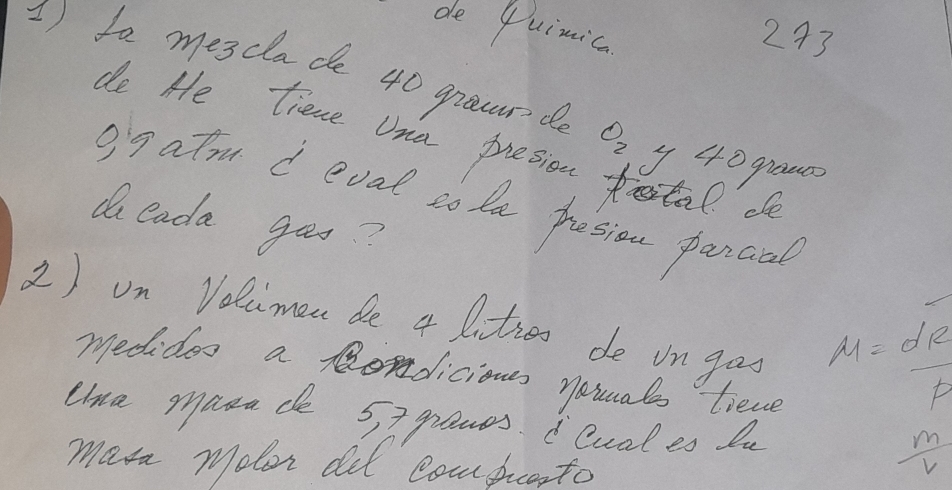 de Quimica.
273
1) La mezcla de 40 gramos de O2 y 40 gramos
de He tiene una presion total de
0,9 atm ¿ cual es la presion parcial
de cada gas ?
2) un Volúmen de 4 litros de un gas
medidos a Condiciones normales tiene
Una masa de 5,7 gramos. ¿ Cual es la
masa molar del compuesto
M = dR
P
m
v